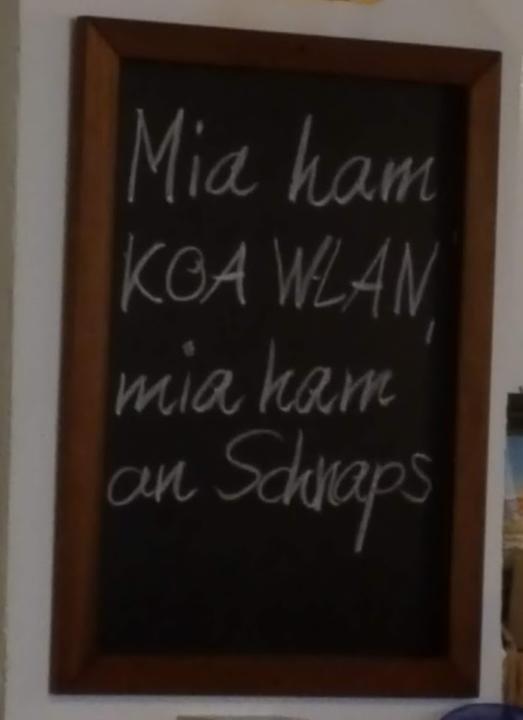 Mia ham
KOA WLAN,
mia ham
an Schnaps